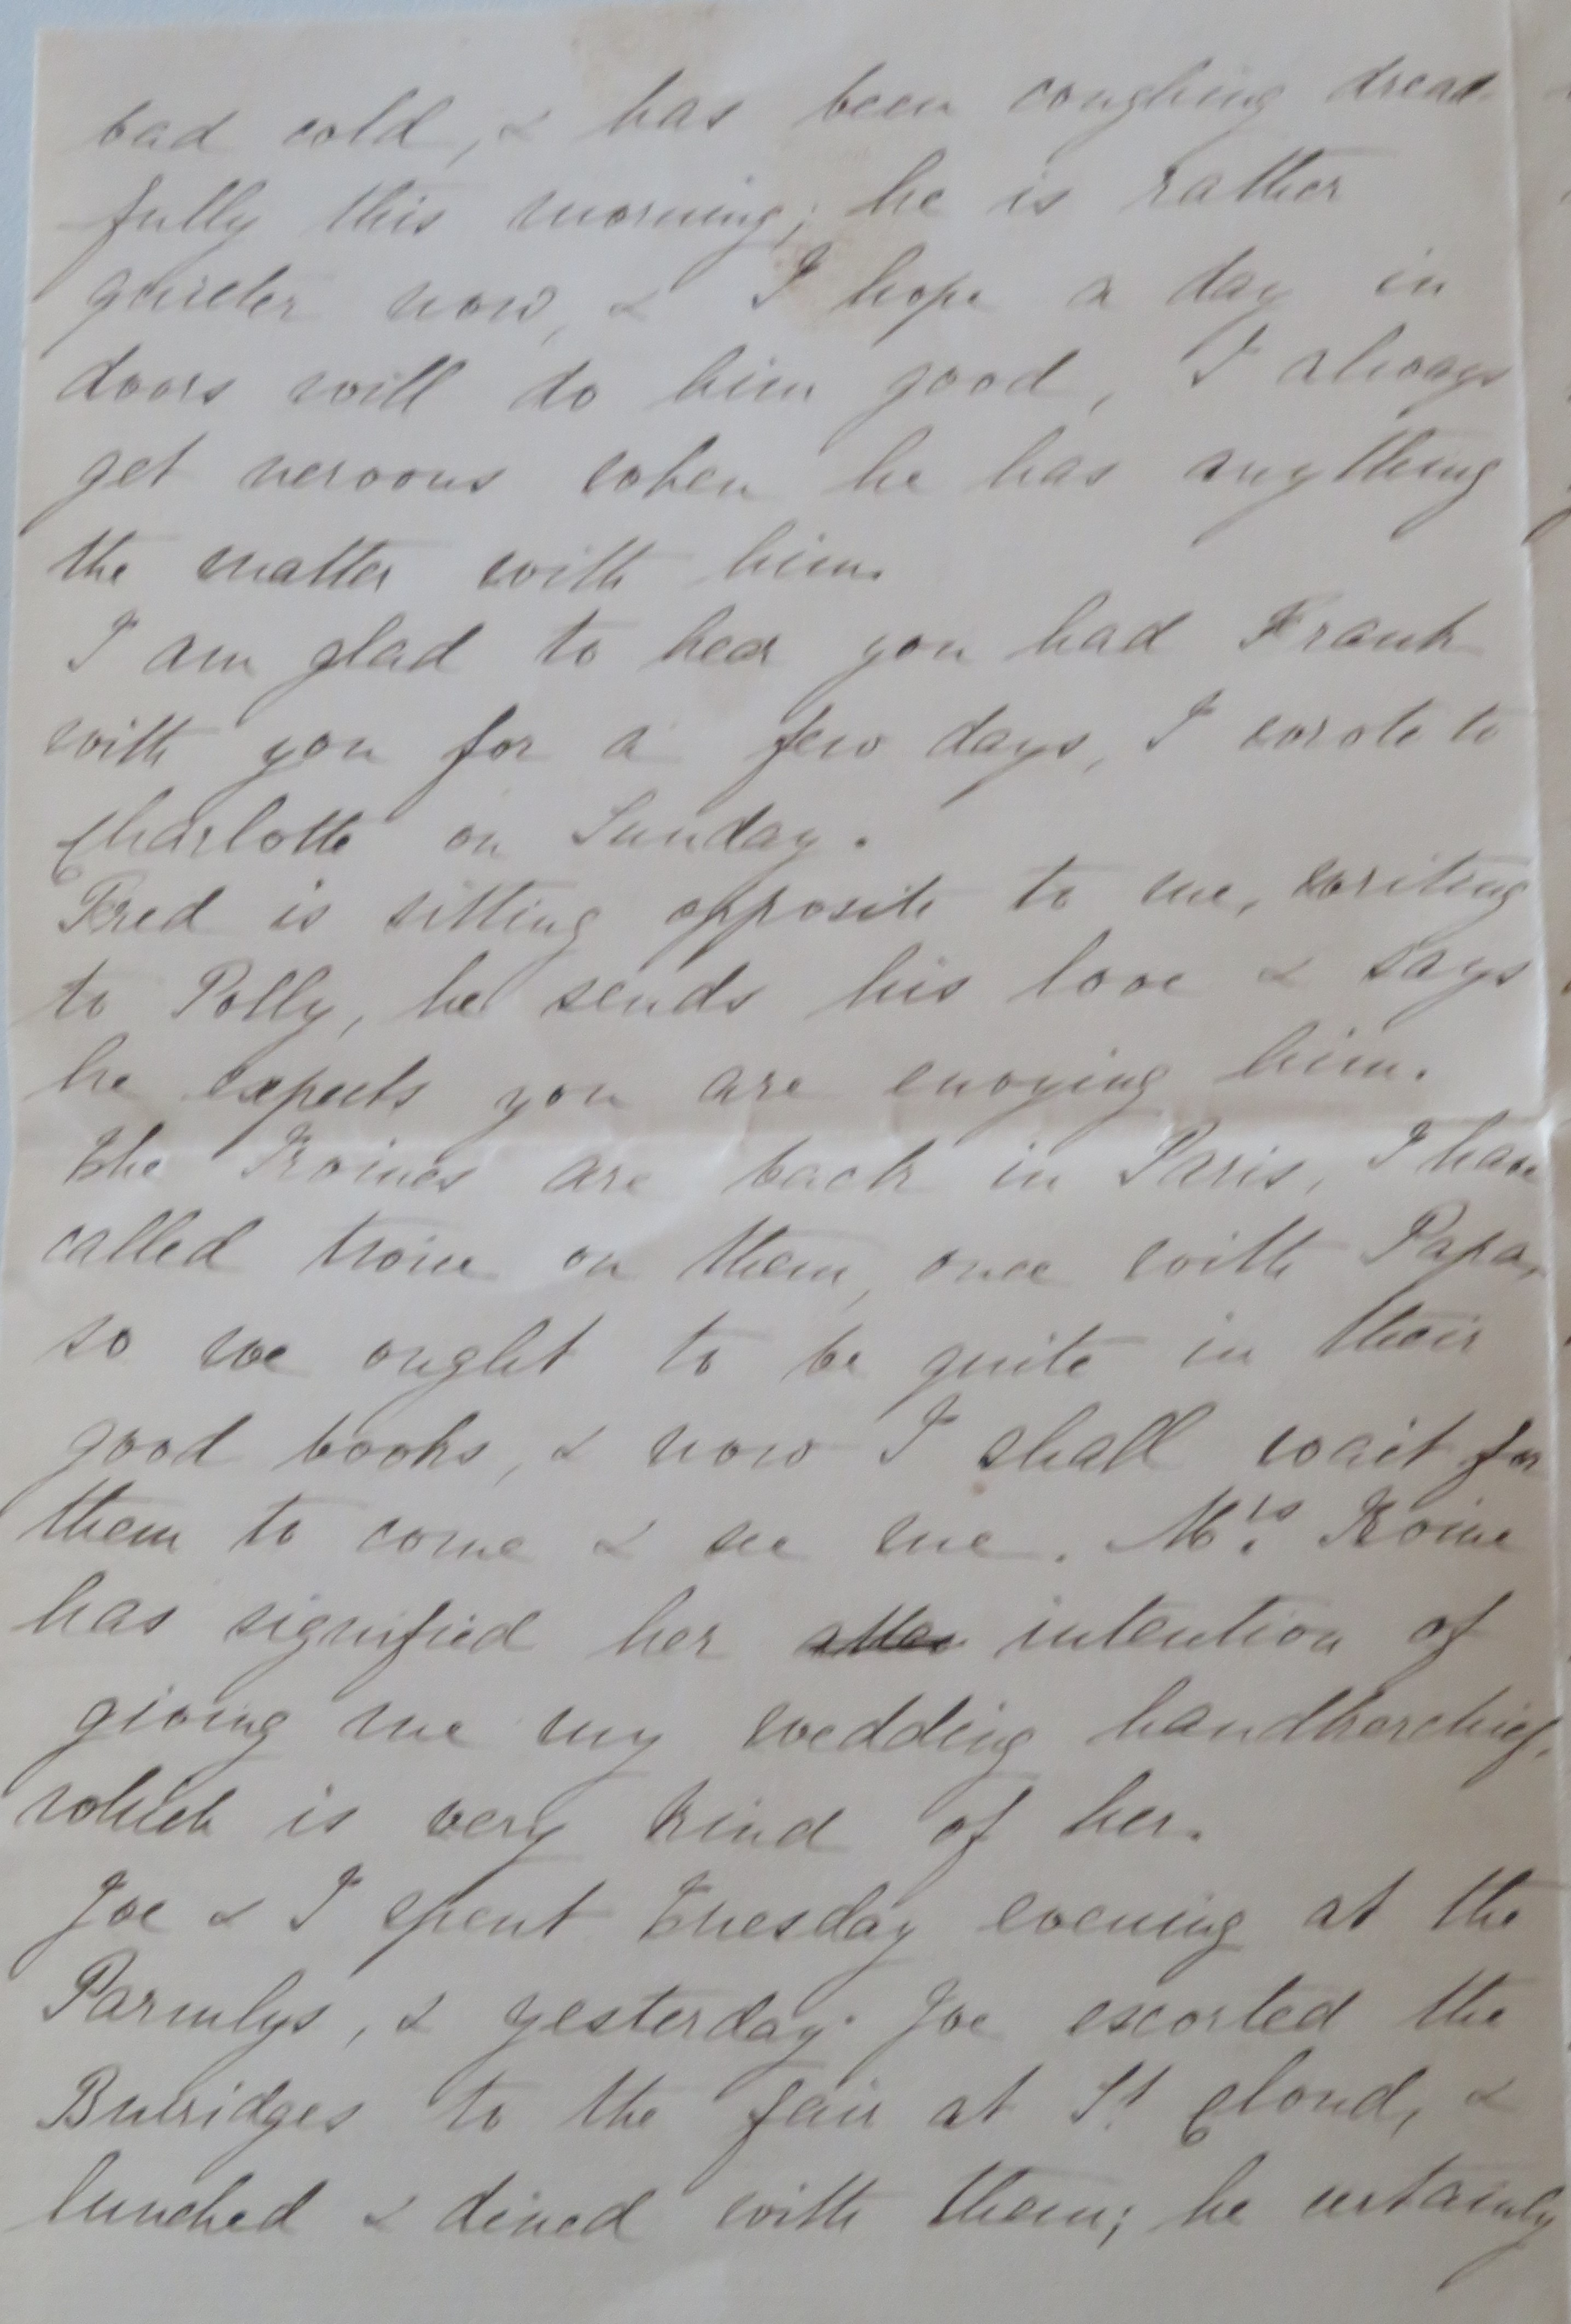 bad cold, & has been coughing dread
fully this morning; he is rather
quieter now, & I hope a day in
doors will do him good, I always
get nervous when he has anything
the matter with him.
I am glad to hear you had Frank
with you for a few days, I wrote to
Charlotte on Sunday.
Fred is sitting opposite to me, writing
to Polly, he sends his love & says
he expects you are envying him.
The are back in Paris, I have
called twice on them, once with Papa,
so we ought to be quite in their
good books, & now I shall wait for
them to come & see me. Mrs.
has signified her intention of
giving me my wedding handkerchief,
which is very kind of her.
Joe & I spent Tuesday evening at the
Parmlys, & yesterday Joe escorted the
Burridges to the fair at St. Cloud, &
lunched & dined with them; he certainly